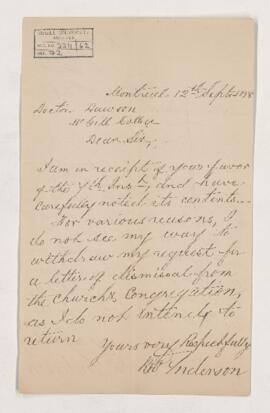 McGILL UNIVERSITY
ARCHIVES
ACC. NO. 224/62
REF. 42
Montreal 12th Sept
Doctor Dawson
McGill College
Dear Sir,
I am in receipt of your favor
of the 7th Inst, and have
carefully noted its contents.
For various reasons, I
do not see my way to
withdraw my request for
a letter of dismissal from
the church & congregation,
as I do not intend to
return
Yours very Respectfully
Robt Anderson